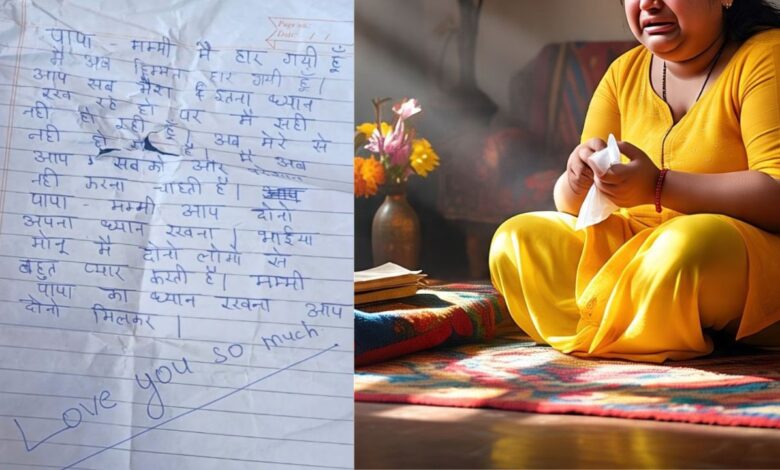 Page No.:
Date: / /
पापा - मम्मी मै हार गयी हूँ
मै अब हिम्मत हार गयी हूँ।
आप सब मेरा इतना ध्यान
रख रहे हो पर मै सही
नही हो रही हूँ। अब मेरे से
नही हो है मै अब
आप सबको और
नही करना चाहती हूँ।
पापा - मम्मी आप दोनो
अपना ध्यान रखना। भाईया
मोनू मै दोनो लोगो से
बहुत प्यार करती हूँ। मम्मी
पापा का ध्यान रखना आप
दोनो मिलकर।
Love you so much